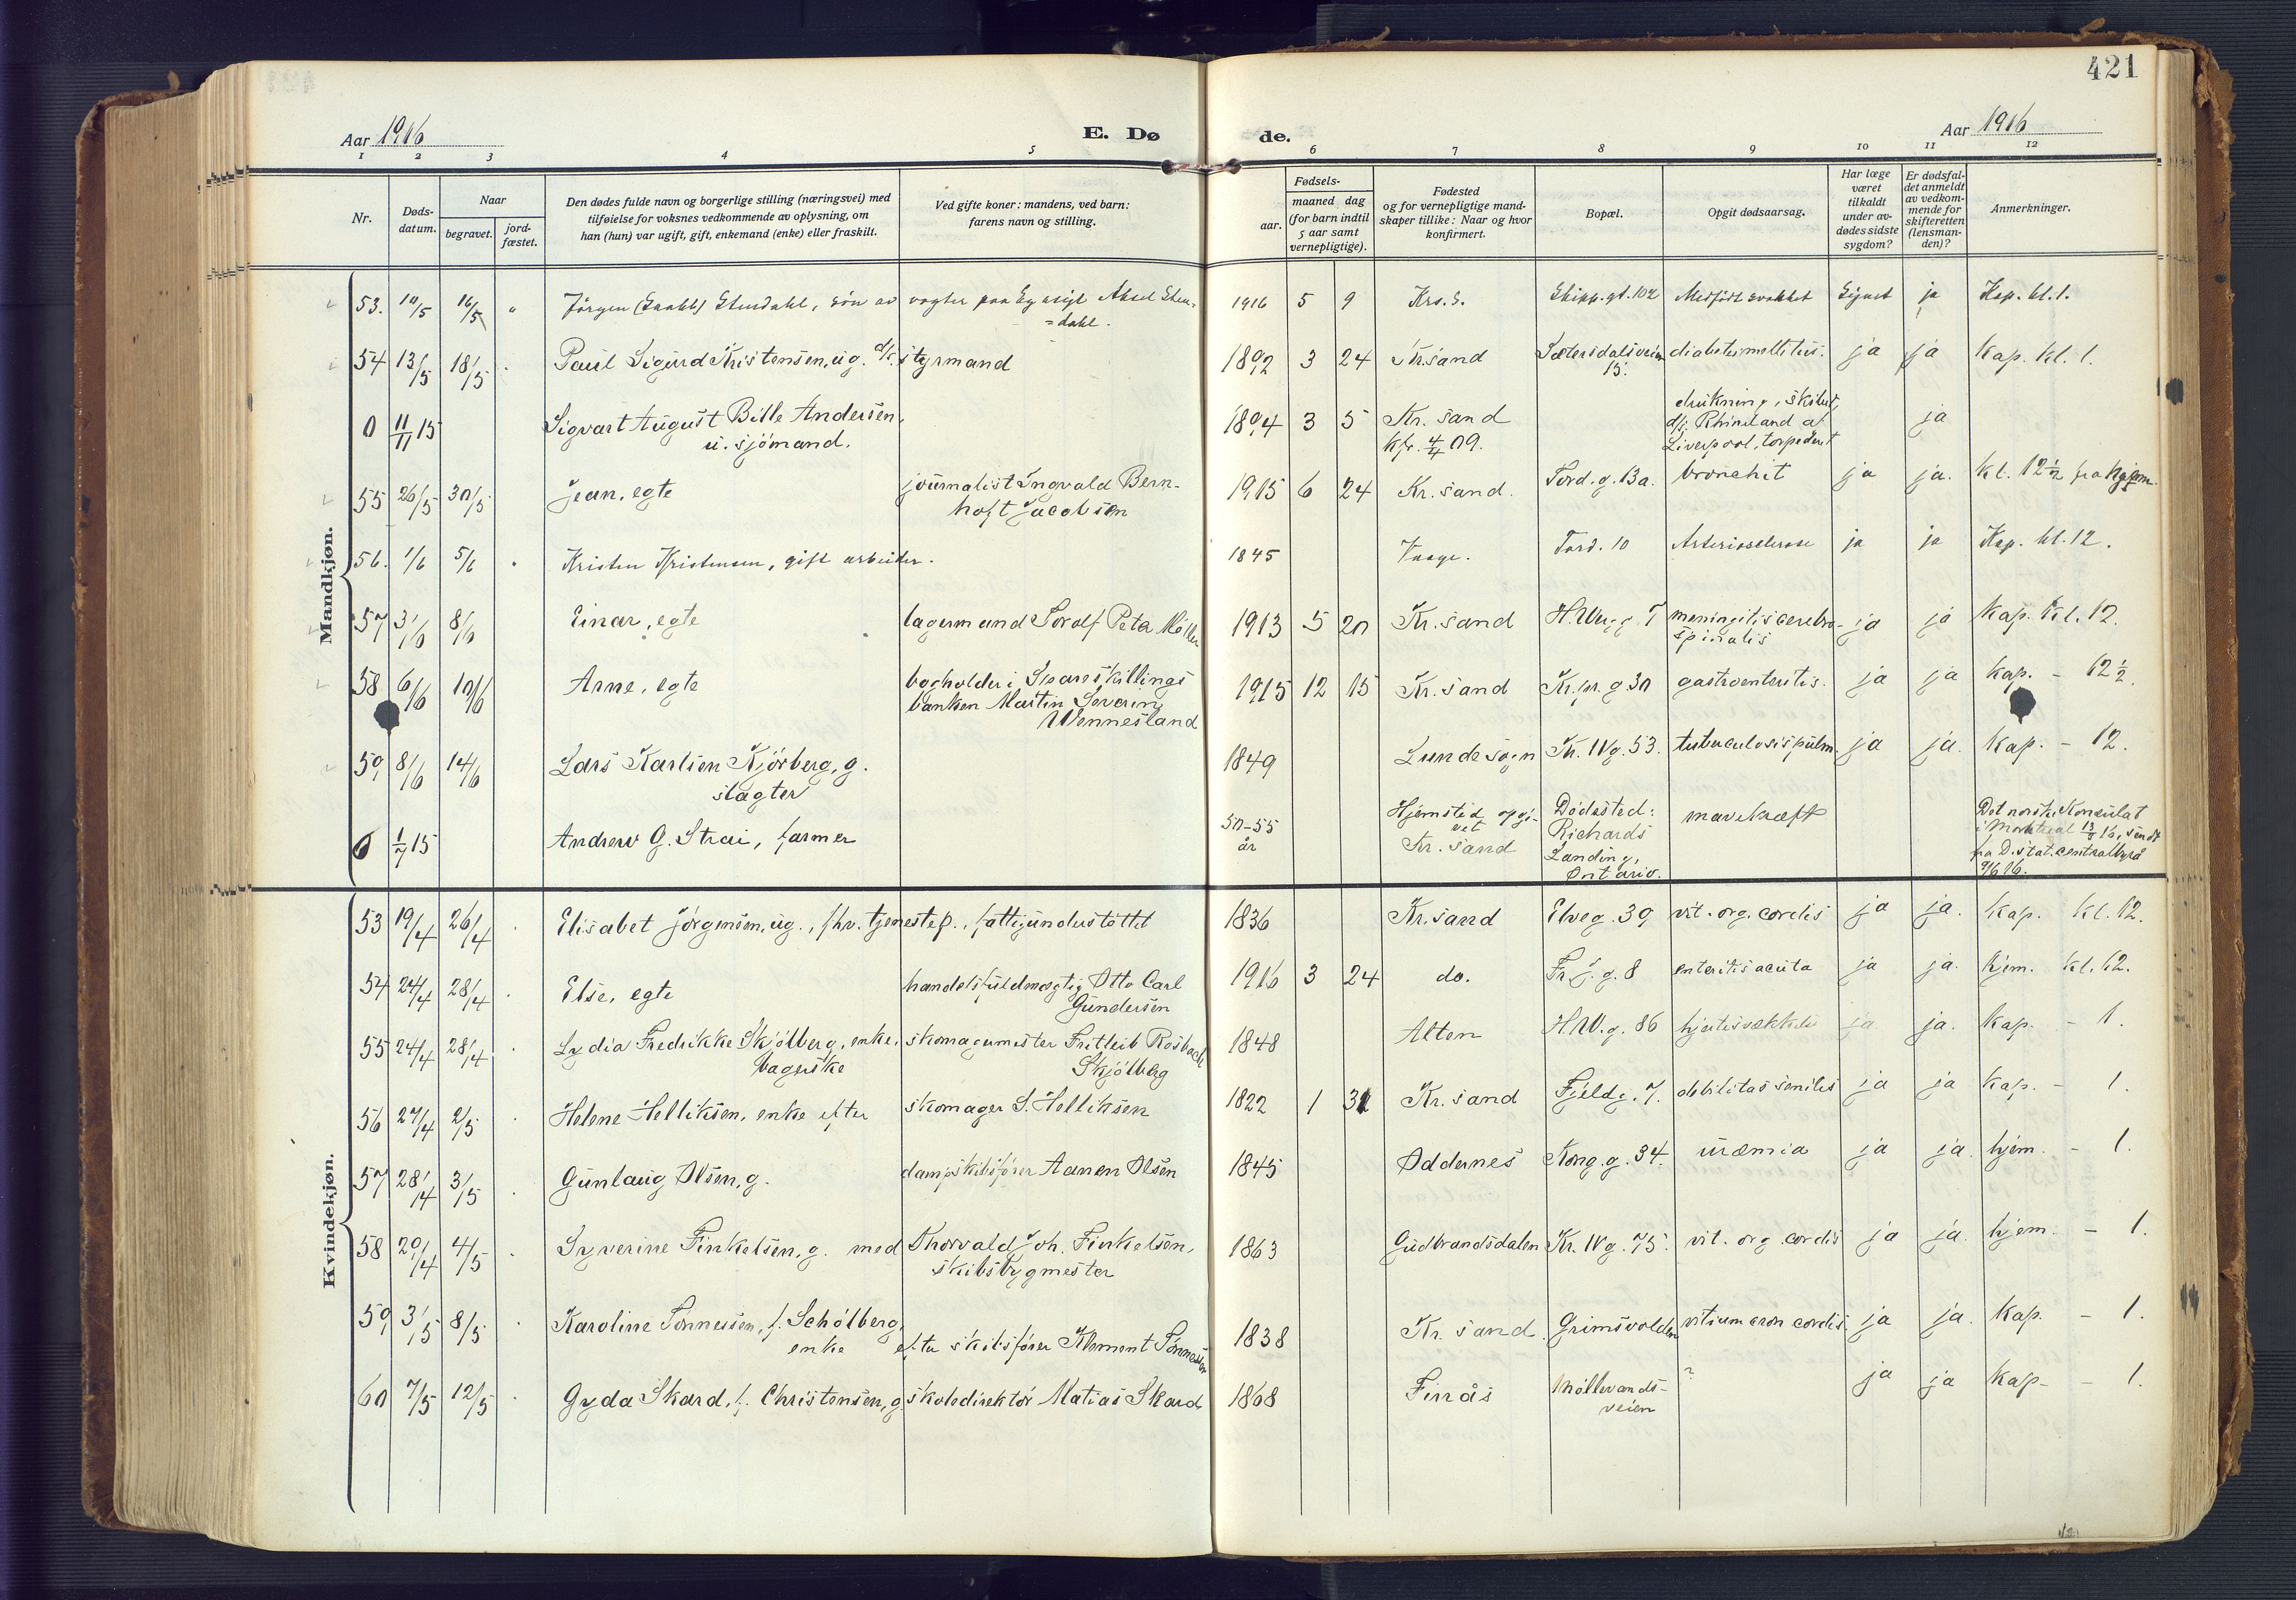 421
Aar 1916
E. Dø de.
Aar 1916
1 2 3 4 5 6 7 8 9 10 11 12
Nr.
Døds-
datum.
Naar
begravet.
jord-
fæstet.
Den dødes fulde navn og borgerlige stilling (næringsvei) med
tilføielse for voksnes vedkommende av oplysning, om
han (hun) var ugift, gift, enkemand (enke) eller fraskilt.
Ved gifte koner: mandens, ved barn:
farens navn og stilling.
Fødsels-
aar.
maaned dag
(for barn indtil
5 aar samt
vernepligtige).
Fødested
og for vernepligtige mand-
skaper tillike: Naar og hvor
konfirmert.
Bopæl.
Opgit dødsaarsag.
Har læge
været
tilkaldt
under av-
dødes sidste
sygdom?
Er dødsfal-
det anmeldt
av vedkom-
mende for
skifteretten
(lensman-
den)?
Anmerkninger.
Mandkjøn.
53. 10/5 16/5 " Jørgen Stendahl, søn av vogter paa Aksel Sten- 1916 5 9 Krs. S. Skipp. gt. 102 Medfødt svakhet ja Kap. kl. 1.
=dahl.
54 13/5 18/5 Paul Sigurd Kristensen, ug. styrmand 1892 3 24 Kr.sand Sætersdalsveien diabetes mellitus. ja ja Kap. kl. 1.
15.
0 11/11 15 Sigvart August Bille Andersen, 1894 3 5 Kr. sand drukning, skibet ja
u. sjömand. kfr. 4/4 09. d/s Rhineland av
Liverpool, torpedert
55 26/5 30/5 Jean, egte journalist Ingvald Bern- 1915 6 24 Kr. sand. Tord. g. 13a. bronchit ja ja. kl. 12½ fra hjem.
hoft Jacobsen
56. 1/6 5/6 Kristen Kristensen, gift arbeider. 1845 Vaage. Tord. 10 Arteriosclerose ja ja Kap. kl. 12.
57 3/6 8/6 Einar, egte lagermand Torolf Møller 1913 5 20 Kr. sand H.W.g. 7 meningitis cerebro- ja ja Kap. kl. 12.
spinalis
58 6/6 10/6 Arne, egte bogholder i Spareskillings 1915 12 15 Kr. sand Kr.pr. g. 30 gastroenteritis. ja ja Kap. - 12½.
banken Martin Severin
Wennesland
59 8/6 14/6 Lars Karlsen Kjörberg, g. 1849 Lunde sogn Kr. IV g. 53. tuberculosis pulm. ja ja. Kap. - 12.
slagter
0 1/7 15 Andrew G. Strai, farmer 50-55 Hjemsted opgi- Dødssted: mavekræft Det norske Konsulat
år vet Richards i Montreal 13/5 16, sendt
Kr. sand Landing, fra D. stat. centralbyrå
Ontario. 9/6 16.
Kvindekjøn.
53 19/4 26/4 Elisabet Jörgensen, ug., fhv. tjenestep., fattigunderstöttet 1836 Kr. sand Elveg. 39 vit. org. cordis ja ja. Kap. kl. 12.
54 24/4 28/4 Else, egte handelsfuldmægtig Otto Carl 1916 3 24 do. Fr. J. g. 8 enteritis acuta ja ja. hjem. kl. 12.
Gundersen
55 24/4 28/4 Lydia Fredrikke Skjölberg, enke, skomagermester Fritleib Rosbach 1848 Alten H.W.g. 86 hjertesvækkelse ja ja. Kap. - 1.
bagerske Skjölberg
56 27/4 2/5 Helene Helliksen, enke efter skomager S. Helliksen 1822 1 31 Kr. sand Fjeldg. 7. debilitas senilis ja ja Kap. - 1.
57 28/4 3/5 Gunlaug Olsen, g. dampskibsfører Aanen Olsen 1845 Oddernes Kong. g. 34. uræmia ja ja. hjem. - 1.
58 29/4 4/5 Syverine Finkelsen, g. med Thorvald Joh. Finkelsen, 1863 Gudbrandsdalen Kr. IV g. 75. vit. org. cordis ja ja. hjem. - 1.
skibsbygmester
59 3/5 8/5 Karoline Tønnessen, f. Schölberg, 1838 Kr. sand Grimsvolden vitium cordis ja ja. Kap. - 1.
enke efter skibsfører Klement Tønnessen
60 7/5 12/5 Gyda Skard, f. Christensen, g. skoledirektör Matias Skard 1868 Finås Møllevands- ? ja ja Kap. - 1.
veien